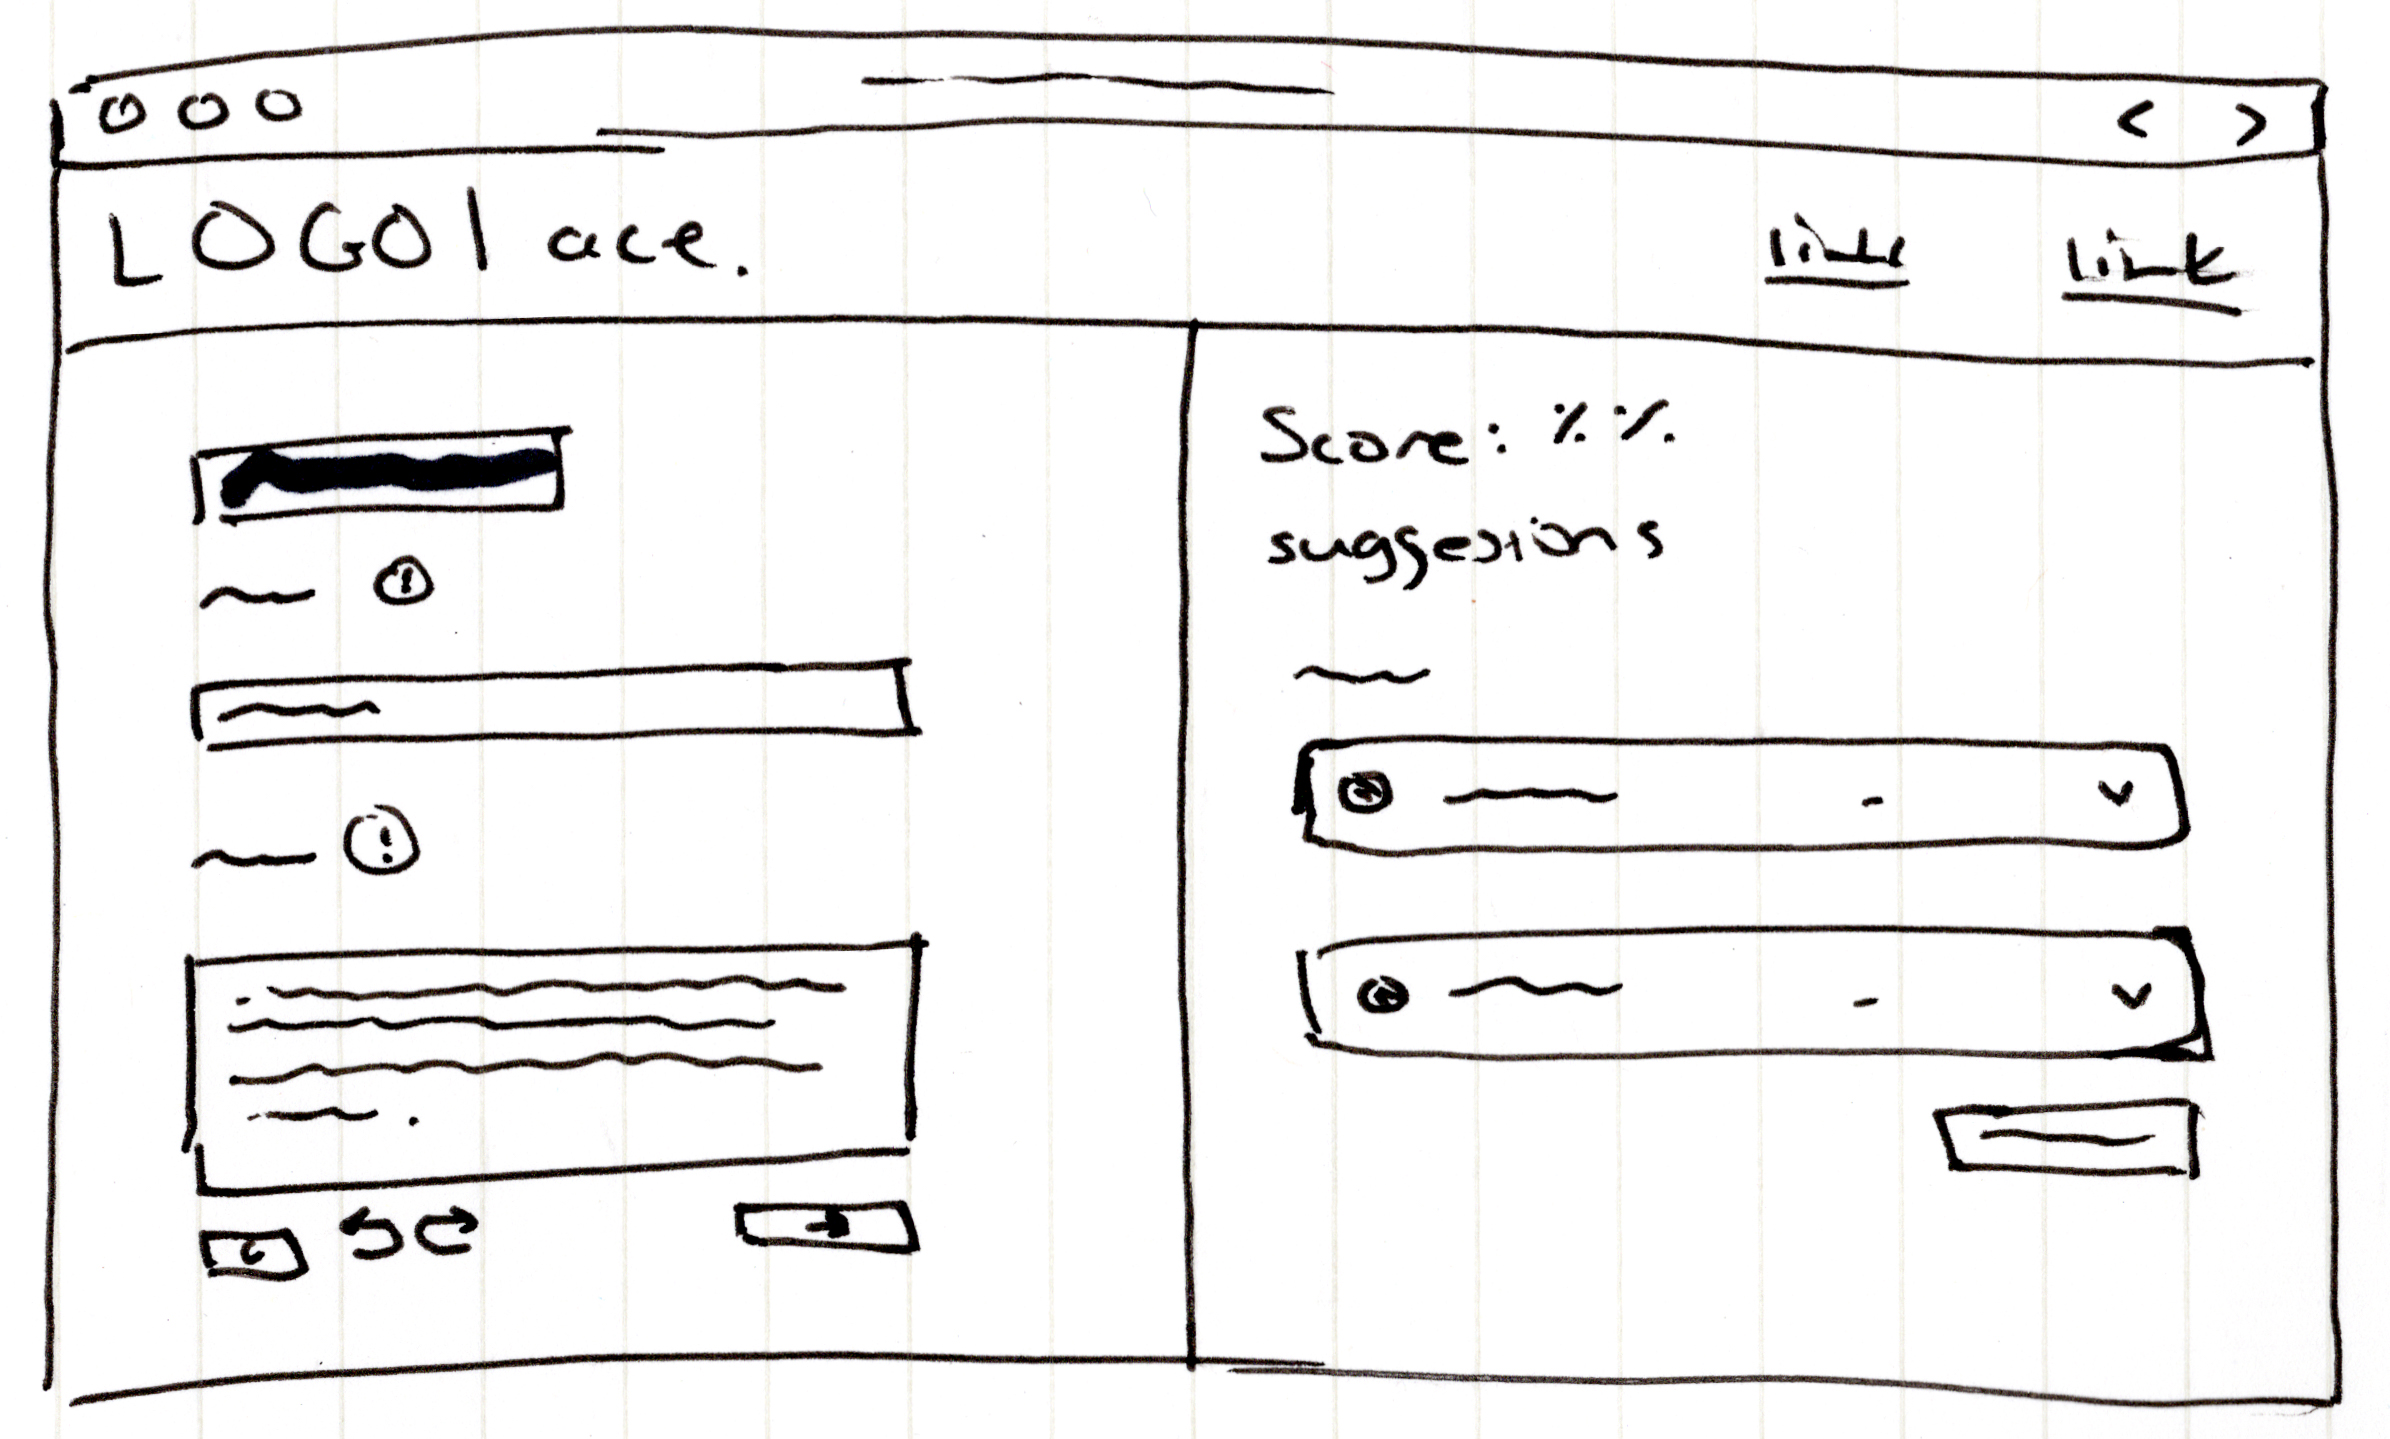 LOGO | ace.
link link
Score: %%
suggesions